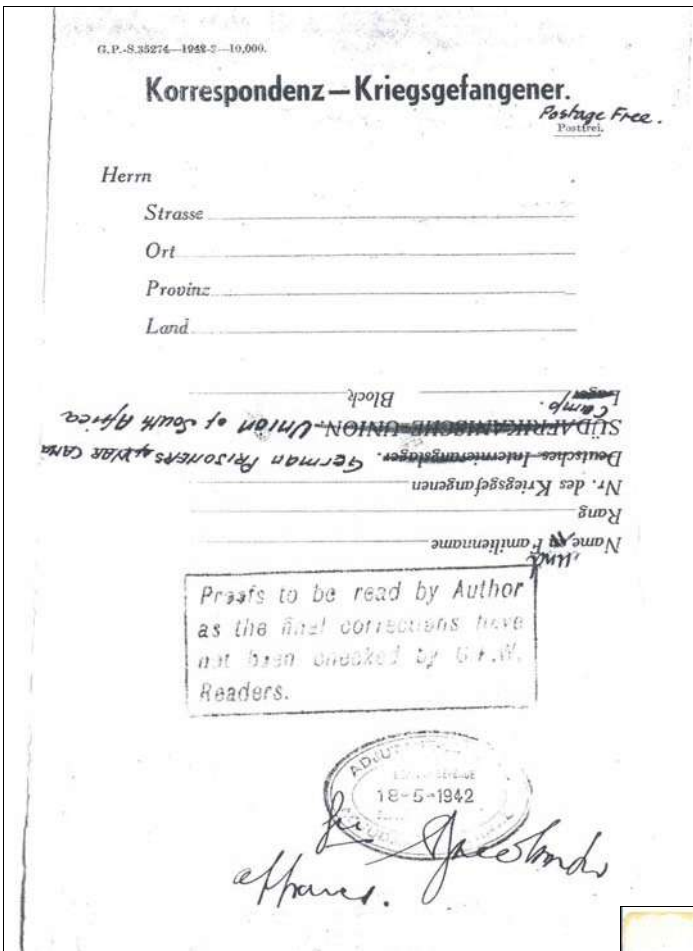 G.P.-S.35274—1942-2—10,000.
Korrespondenz—Kriegsgefangener.
Postage Free.
Postfrei.
Herrn
Strasse
Ort
Provinz
Land
Name und Familienname
Rang
Nr. des Kriegsgefangenen
Deutsches Internierungslager. GERMAN PRISONERS of WAR CAMP
SÜDAFRIKANISCHE UNION. UNION of South Africa
Lager Camp. Block
Proofs to be read by Author
as the final corrections have
not been checked by G.P.W.
Readers.
18-5-1942